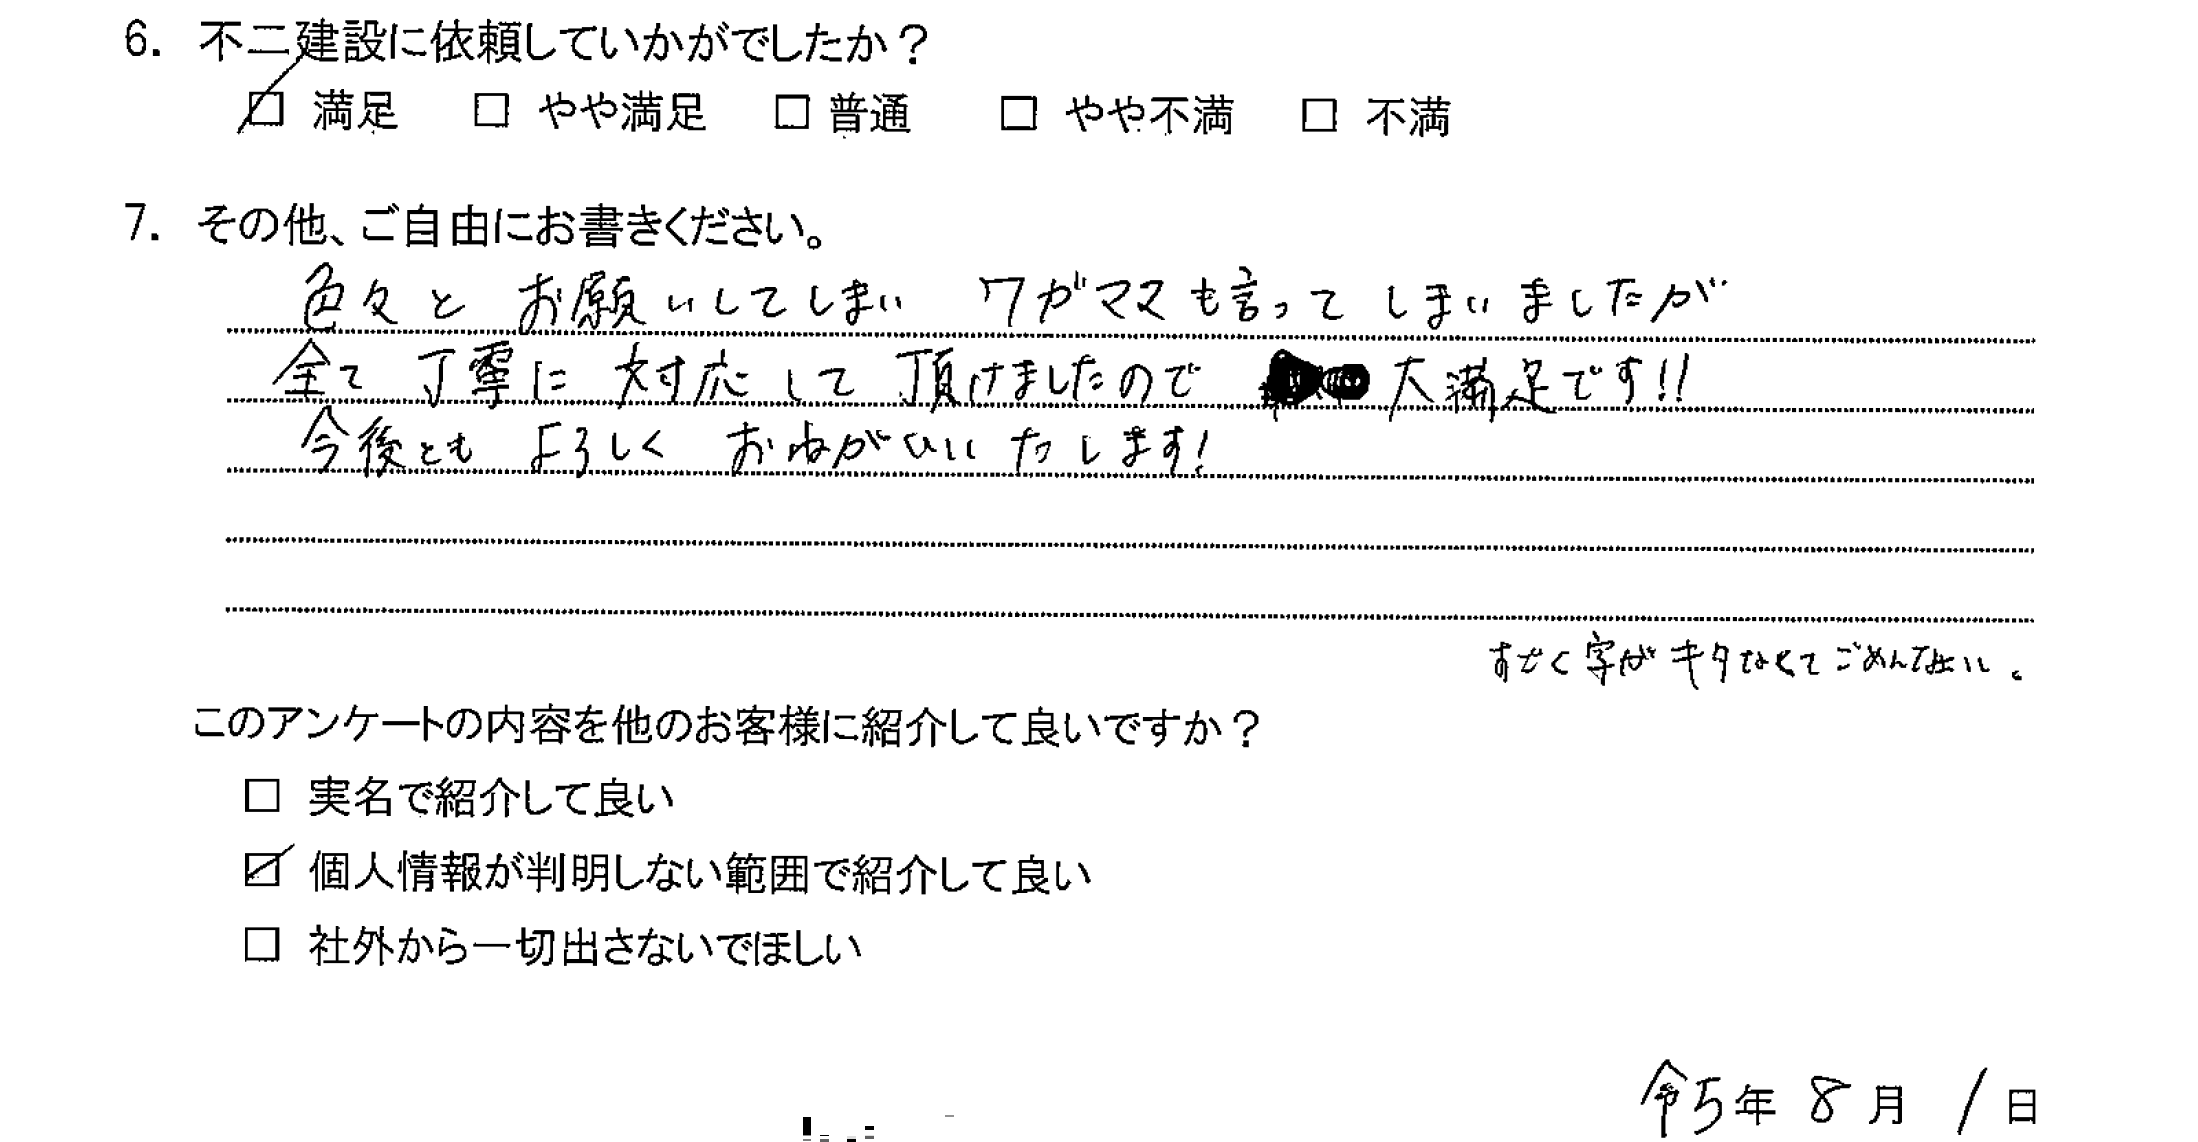 6. 不二建設に依頼していかがでしたか？
☑ 満足 □ やや満足 □ 普通 □ やや不満 □ 不満
7. その他、ご自由にお書きください。
色々と お願いしてしまい ワガママも言ってしまいましたが
全て丁寧に対応して頂けましたので 大満足です!!
今後とも よろしく おねがいいたします!
すごく字がキタなくてごめんなさい。
このアンケートの内容を他のお客様に紹介して良いですか？
□ 実名で紹介して良い
☑ 個人情報が判明しない範囲で紹介して良い
□ 社外から一切出さないでほしい
令5年 8月 1日